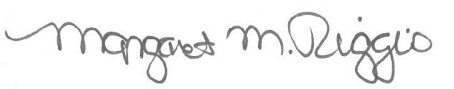 Margaret M. Riggio